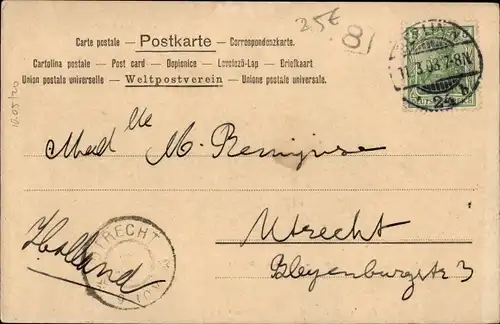 25€ 81
Carte postale – Postkarte – Correspondenzkarte.
Cartolina postale – Post card – Dopisnice – Levelező-Lap – Briefkaart
Union postale universelle – Weltpostverein – Unione postale universale.
Mad lle M. Remijnse
Utrecht
Bleyenburgstr 3
Holland
UTRECHT